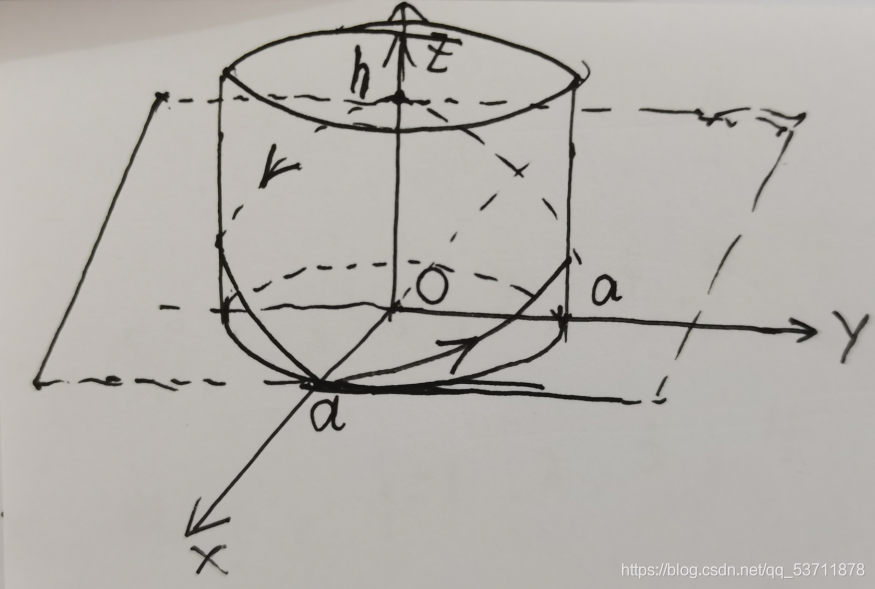 h
z
O
a
Y
a
X
https://blog.csdn.net/qq_53711878